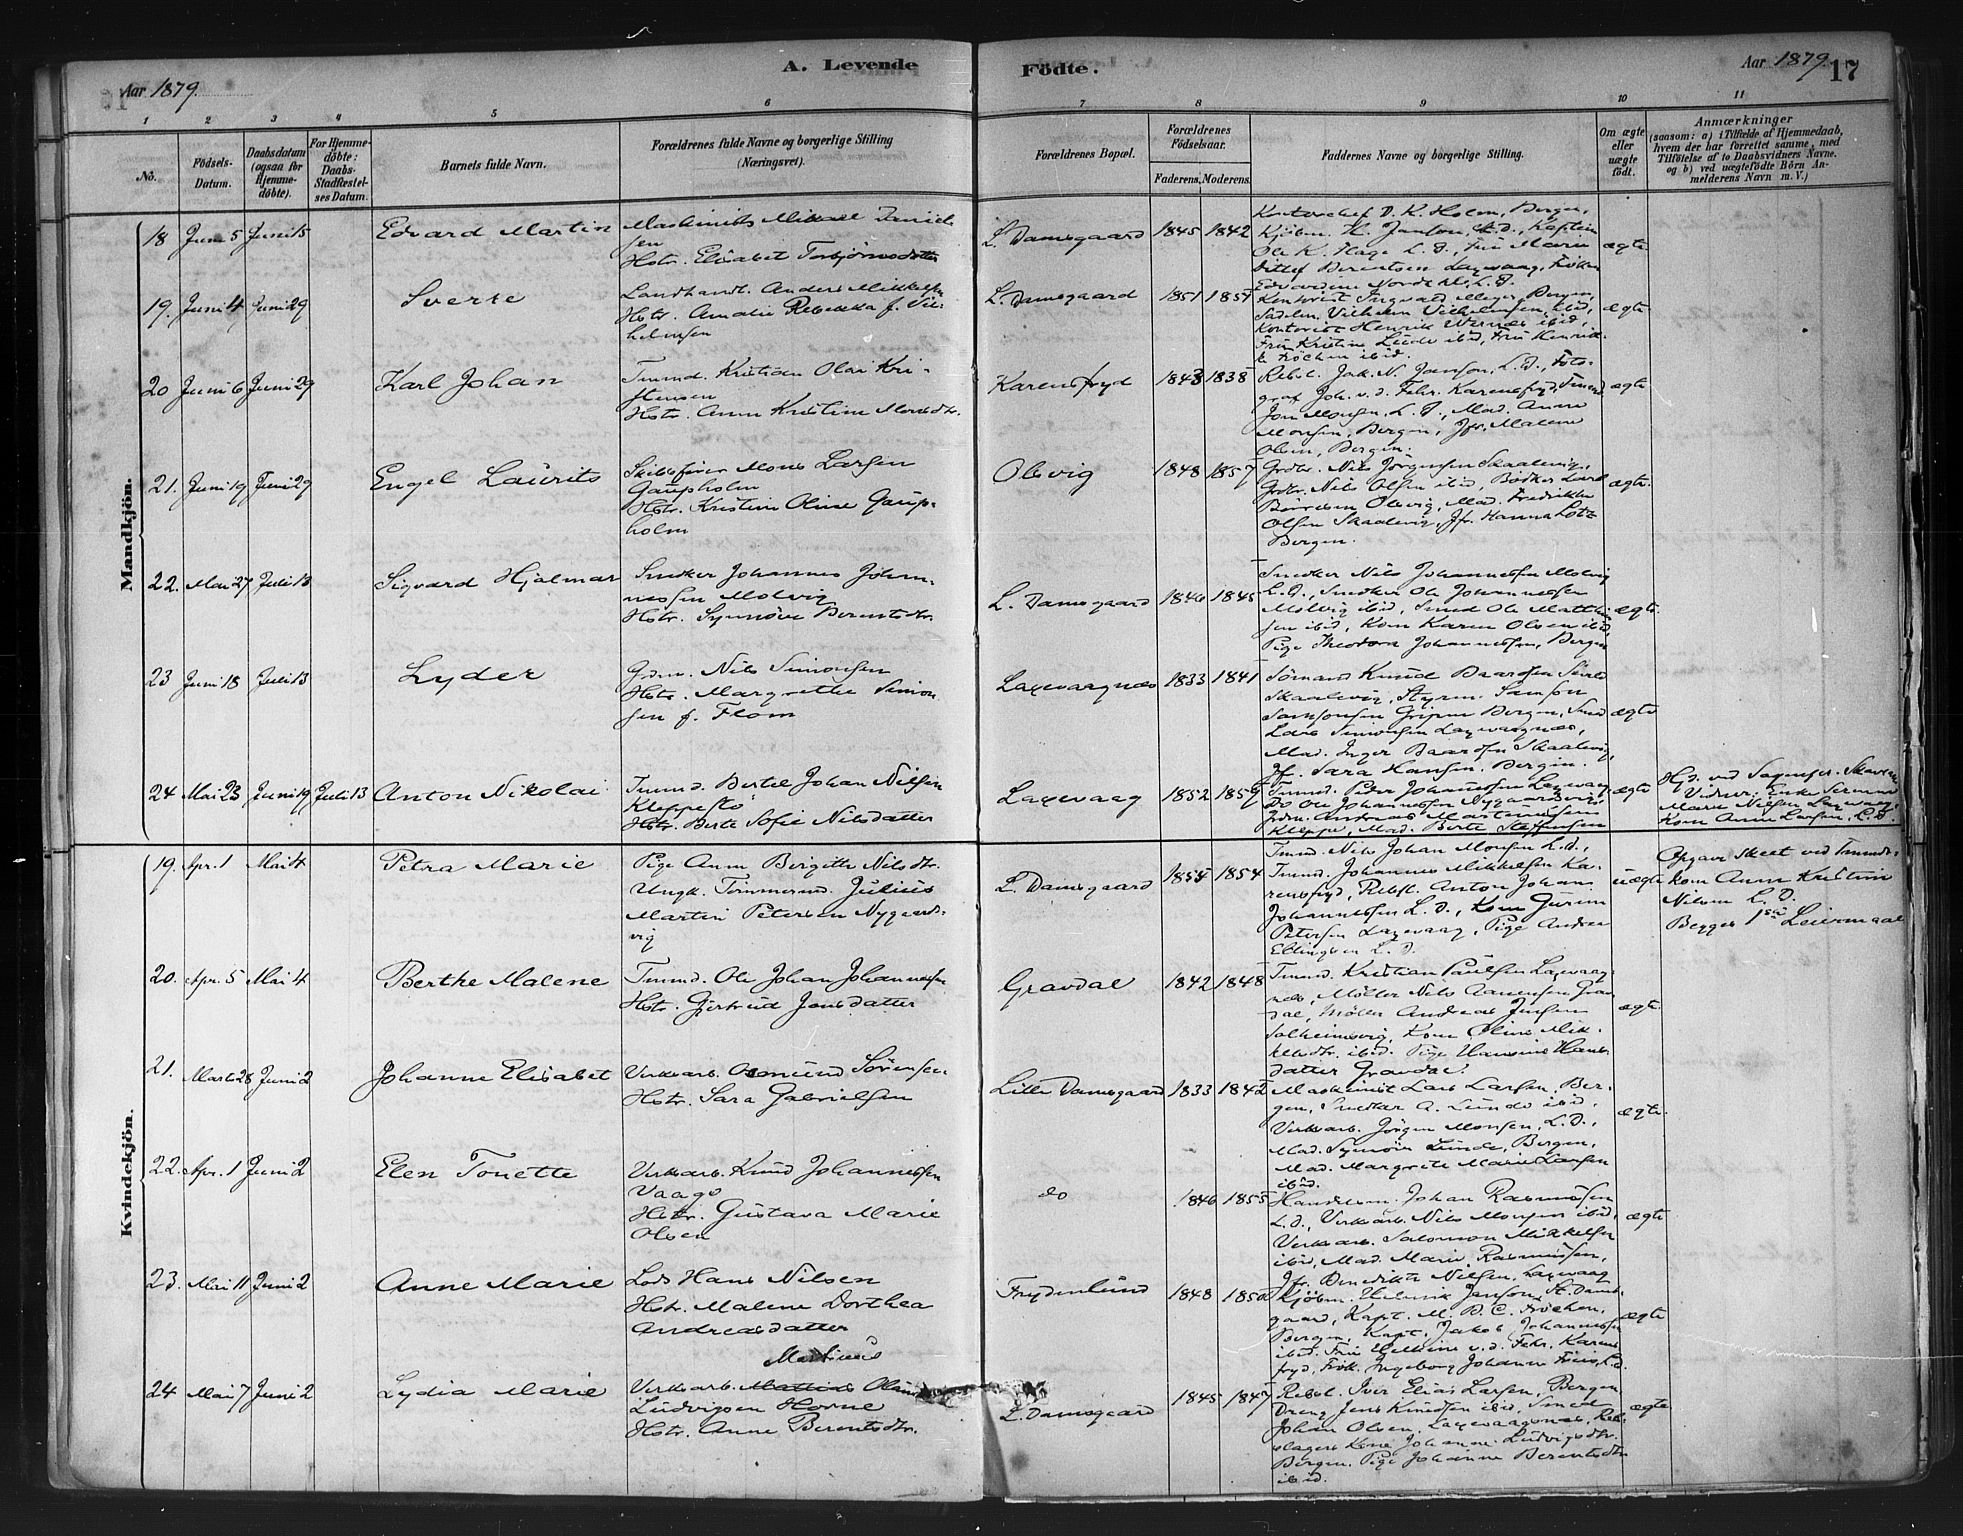 Aar 1879.
A. Levende
Födte.
Aar 1879. 17
1 2 3 4 5 6 7 8 9 10 11
No.
Födsels-Datum.
Daabsdatum (ogsaa for Hjemme-döbte).
For Hjemme-döbte: Daabs-Stadfæstel-ses Datum.
Barnets fulde Navn.
Forældrenes fulde Navne og borgerlige Stilling (Næringsvei).
Forældrenes Bopæl.
Forældrenes Födselsaar.
Faderens. Moderens.
Faddernes Navne og borgerlige Stilling.
Om ægte eller uægte födt.
Anmærkninger
(saasom: a) i Tilfælde af Hjemmedaab, hvem der har forrettet samme, med Tilföielse af to Daabsvidners Navne. og b) ved uægtefödte Börn Anmelderens Navn m. V.)
Mandkjön.
18 Juni 5 Juni 15 Edvard Martin
Maskinist Mikael Daniel-
sen
Hstr. Elisabet Torbjørnsdatter
L. Damsgaard 1845 1842
D. K. Holm, Bergen,
Kjøbm. H. Janson, L. D., Kaptein
Ole K. Hage L. D., Fru Marie
Ditlef Berentsen Laxevaag, Frøken
L. D.
ægte
19. Juni 4 Juni 29 Sverre
Landhandl. Anders Mikkelsen
Hstr. Amalie Rebekka f. Vil-
helmsen
L. Damsgaard 1851 1851
Kontorist Ingvald Meyer, Bergen,
Vilhelm Vilhelmsen, ibid,
Kontorist Henrik Wernæs ibid,
Frue Kristine Lunde ibid, Frue Henrik-
ke Frøchen ibid.
ægte
20 Juni 6 Juni 29 Karl Johan
Tmmd. Kristian Olai Kri-
stensen
Hstr. Anne Kristine Monsdtr.
Karensfryd 1843 1838
Rebsl. Jak. N. Janson, L. D., Foto-
graf Joh. v. d. Fehr. Karensfryd, Tmmd
Jon Monsen, L. D., Mad. Anne
Monsen, Bergen, Jfr. Malene
Olsen, Bergen.
ægte
21. Juni 19 Juni 29 Engel Laurits
Skibsfører Mons Larsen
Gaupholm
Hstr. Kristine Oline Gaup-
holm
Olsvig 1848 1857
Grdbr. Nils Jørgensen Skaalevig,
Grdbr. Nils Olsen ibid, Bødker Lars
Børresen Olsvig, Mad. Fredrikke
Olsen Skaalevig, Jfr. Hanna Lotz
Bergen.
ægte.
22. Mai 27 Juli 13 Sigvard Hjalmar
Snedker Johannes Johan-
nessen Molvig
Hstr. Synnøve Berentsdtr.
L. Damsgaard 1846 1845
Snedker Nils Johannessen Molvig
L. D., Snedker Ole Johannessen
Molvig ibid, Smed Ole Matthie-
sen ibid, Kone Karen Olsen ibid,
Pige Theodora Johannessen, Bergen
ægte.
23 Juni 18 Juli 13 Lyder
Grdm. Nils Simonsen
Hstr. Margrethe Simon-
sen f. Flom
Laxevaagnæs 1833 1841
Sømand Knud Baardsen
Skaalevig, Styrm. Samson
Samsonsen Bergen, Smed
Lars Simonsen Laxevaagnæs,
Mad. Inger Baardsen Skaalevig,
Jfr. Sara Hansen. Bergen.
ægte
24 Mai 23 Juni 19 Juli 13 Anton Nikolai
Tmmd. Bertel Johan Nilsen
Kleppestø
Hstr. Berte Sofie Nilsdatter
Laxevaag 1852 1859
Tmmd. Peder Johannessen Laxevaag
Do Ole Johannessen Nygaardsvig,
Grdm. Andreas Martensen
Kleppe, Mad. Berte Steffensen
ægte
Hjd. ved Sognepr.
Vidner: Enke
Marie Nilsen Laxevaag,
Kone Anne Larsen, L. D.
Kvindekjön.
19. Apr. 1 Mai 4 Petra Marie
Pige Anne Bergitte Nilsdtr.
Ungk. Tømmermd. Julius
Martin Petersen Nygaards-
vig
L. Damsgaard 1855 1854
Tmmd. Nils Johan Monsen L. D.,
Tmmd. Johannes Mikkelsen Ka-
rensfryd, Rebsl. Anton Johan
Johannessen L. D., Kone Guren
Petersen Laxevaag, Pige Andrea
Ellingsen L. D.
uægte
Opgave skeet ved Tmmds.
kone Anne Kristine
Nilsen L. D.
Begges 1ste Leiermaal
20. Apr. 5 Mai 4 Berthe Malene
Tmmd. Ole Johan Johannessen
Hstr. Gjertrud Jonsdatter
Gravdal 1842 1848
Tmmd. Kristian Paulsen Laxevaag-
næs, Møller Nils Aanensen Grav-
dal, Møller Andreas Jensen
Solheimsvig, Kone Oline Mik-
kelsdtr. ibid. Pige Hansine Hans-
datter Gravdal.
ægte.
21. Marts 28 Juni 2 Johanne Elisabet
Verksarb. Osmund Sørensen
Hstr. Sara Gabrielsen
Lille Damsgaard 1833 1842
Maskinist Lars Larsen, Ber-
gen, Snedker A. Lunde ibid,
Verksarb. Jörgen Monsen, L. D.,
Mad. Synnöv Lunde, Bergen,
Mad. Margrete Marie Larsen
ibid.
ægte.
22. Apr. 1 Juni 2 Elen Tonette
Verksarb. Knud Johannessen
Vaage
Hstr. Gustava Marie
Olsen
do 1846 1855
Handelsm. Johan Rasmussen
L. D., Verksarb. Nils Monsen ibid,
Verksarb. Salomon Mikkelsen
ibid, Mad. Marie Rasmussen,
Jfr. Benedikte Nilsen, Laxevaag
ægte
23. Mai 11 Juni 2 Anne Marie
Lods Hans Nilsen
Hstr. Malene Dorthea
Andreasdatter
Frydenlund 1848 1850
Kjøbm. Helmik Janson, St. Dams-
gaard, Kapt. M. B. C. Frøchen,
Bergen, Kapt. Jakob Johannessen
ibid. Frue Helmine v. d. Fehr. Karens-
fryd, Frøk. Ingeborg Johanne Friis, L. D.
ægte
24 Mai 7 Juni 2 Lydia Marie
Martinus
Verksarb. Mattias Olaus
Ludvigsen Horne
Hstr. Anne Berentsdtr.
L. Damsgaard 1845 1847
Rebsl. Iver Elias Larsen, Bergen
Dreng Jens Knudsen ibid, Smed
Johan Olsen, Laxevaagsnæs, Reb-
slagers Kone Johanne Ludvigsdtr.
Bergen. Pige Johanne Berentsdtr
ibid.
ægte